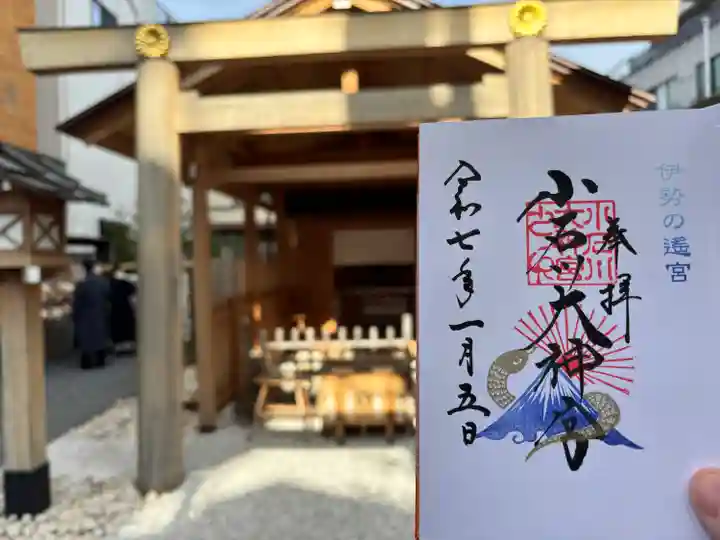 伊勢の遙宮
奉拝
小石川大神宮
令和七年一月五日